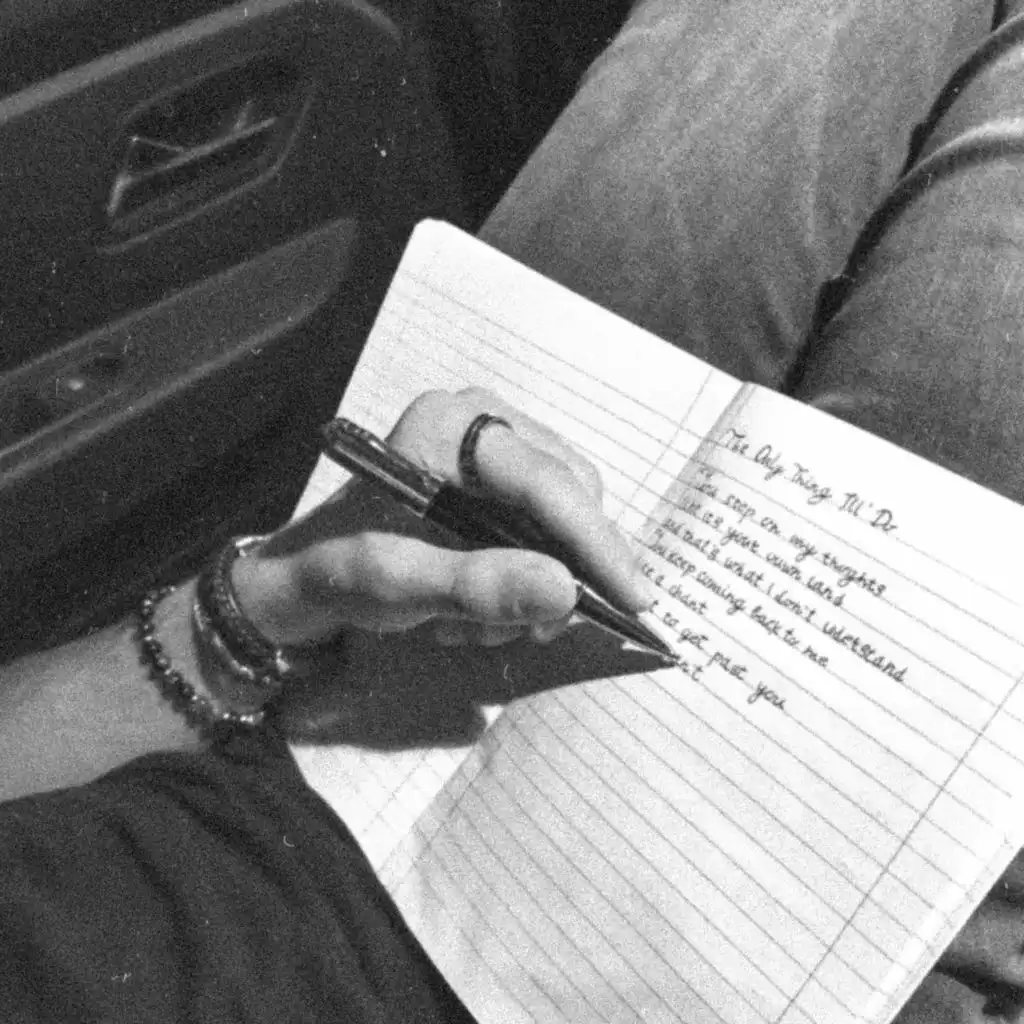 The Only Thing I'll Do
step on my thoughts
it's your own land
what I don't understand
keep coming back to me
a chant
to get past you